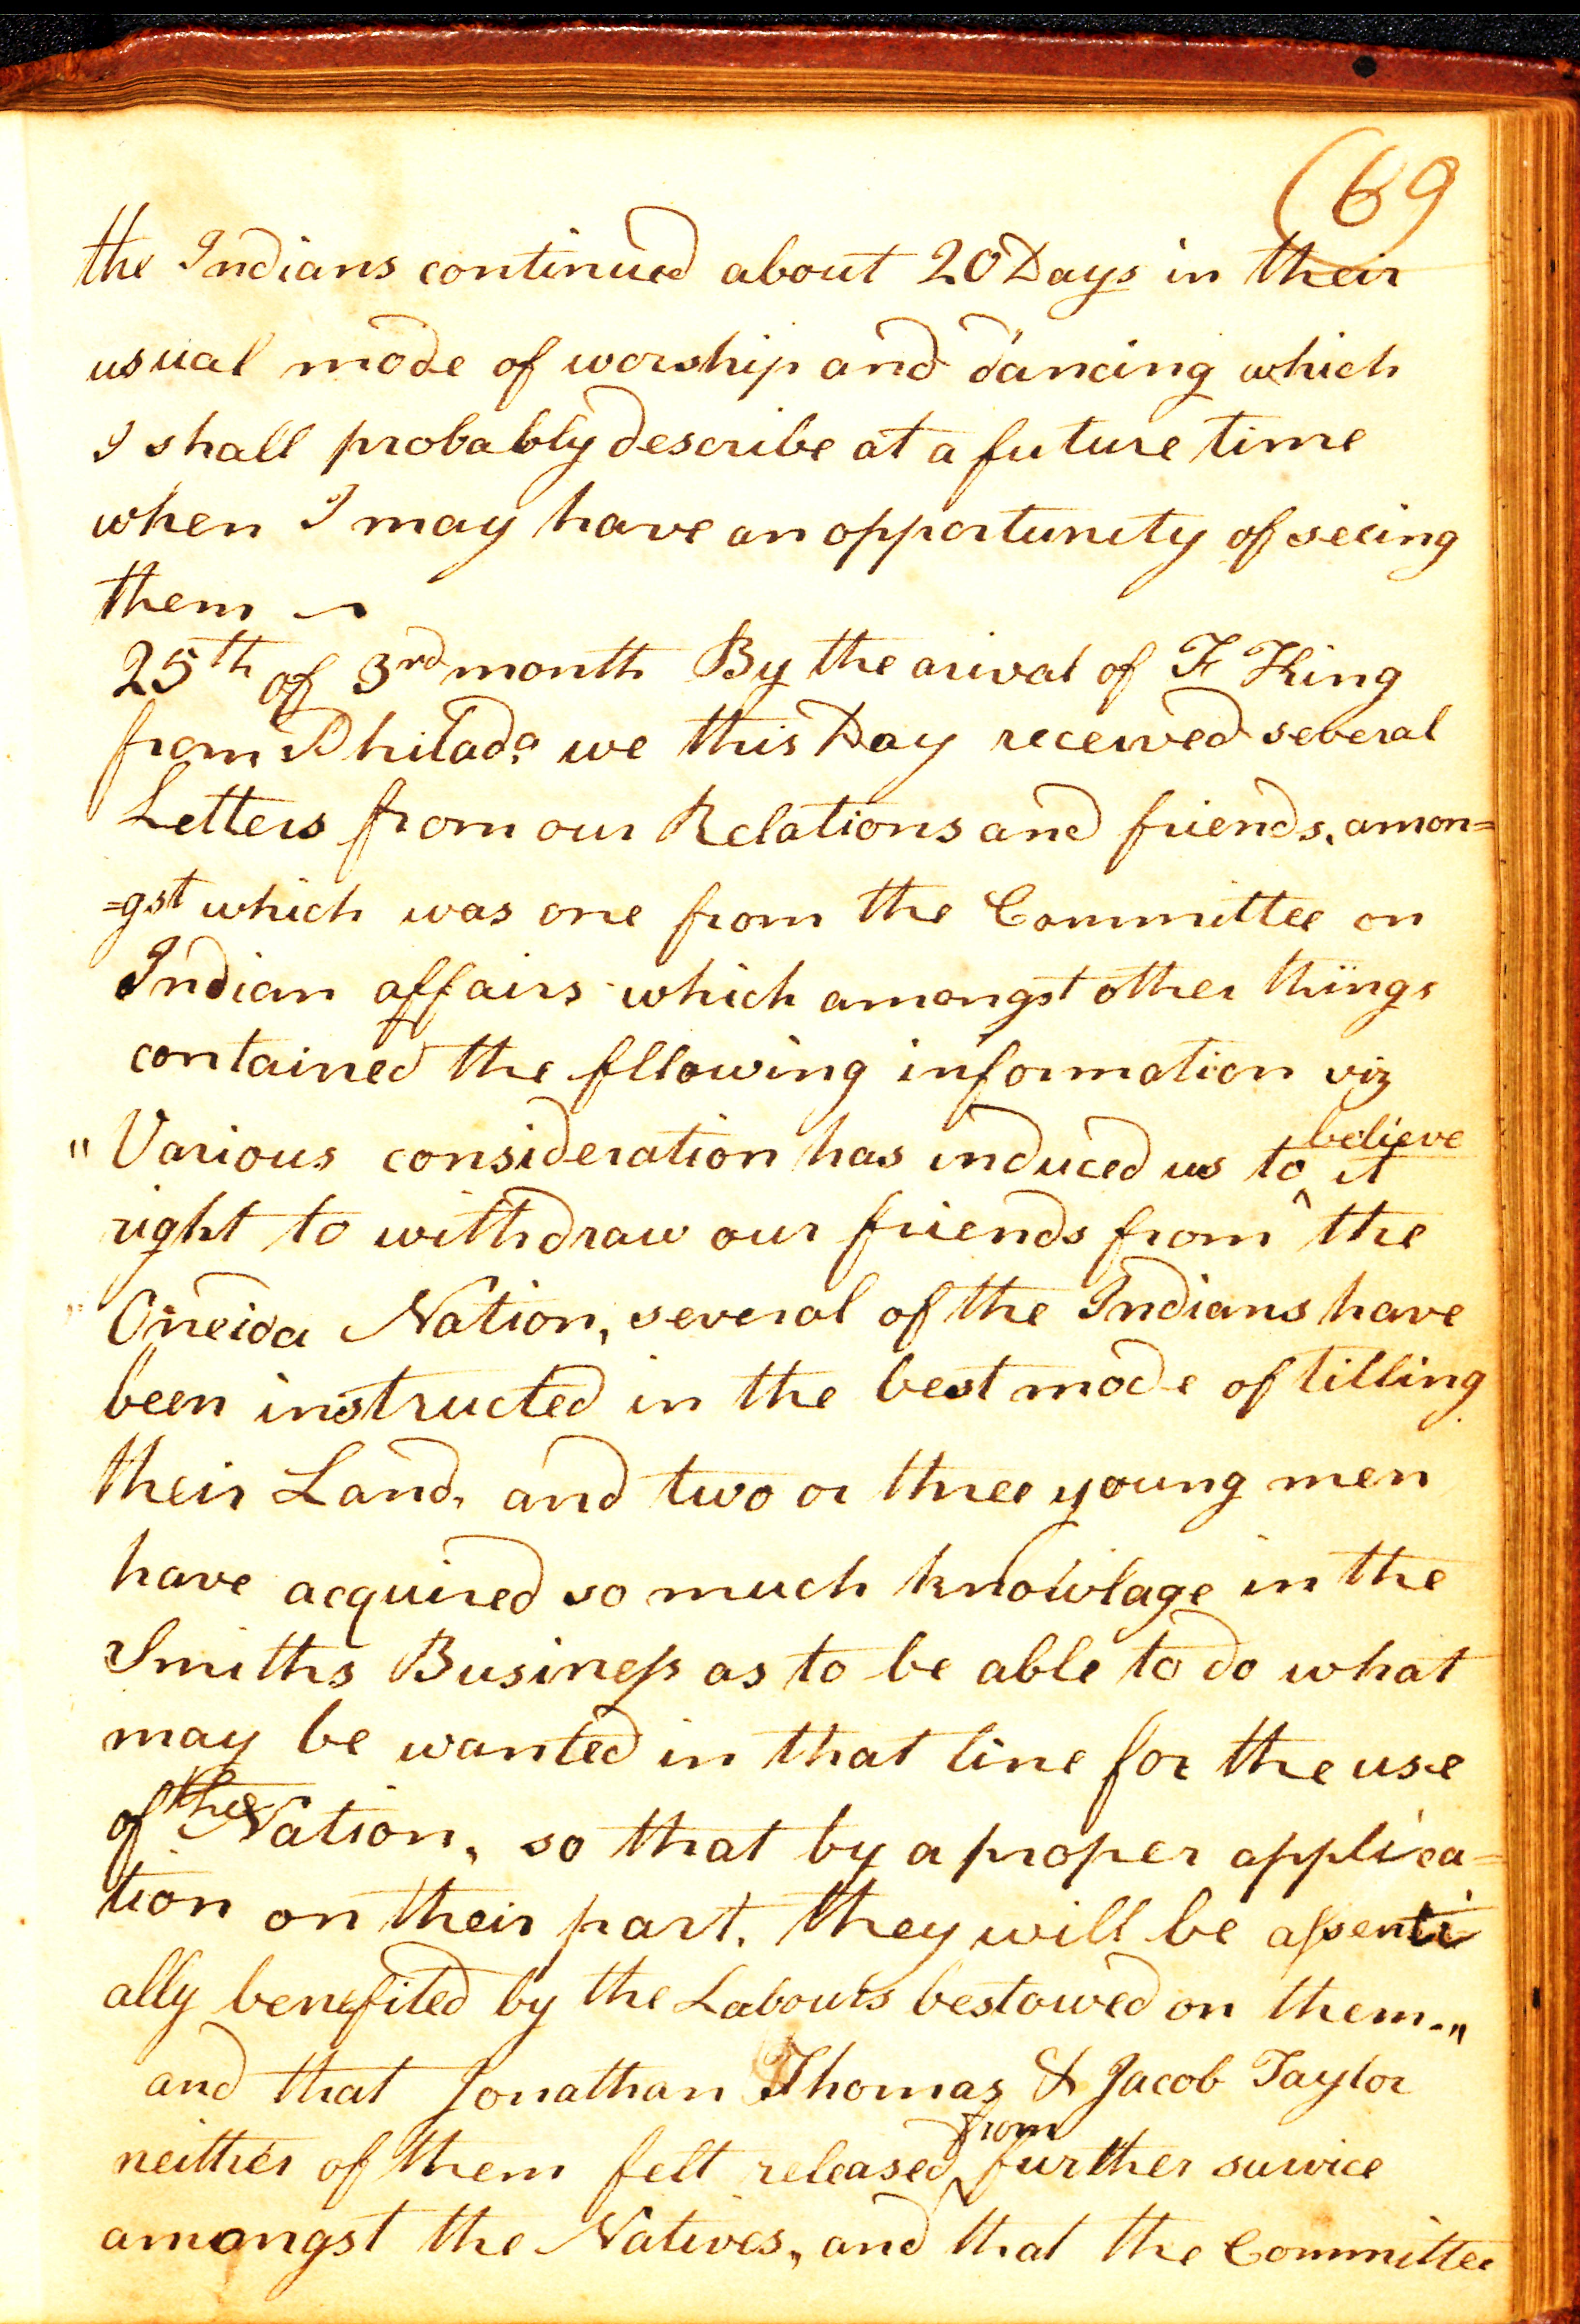 (69
the Indians continued about 20 Days in their
usual mode of worship and dancing which
I shall probably describe at a future time
when I may have an opportunity of seeing
them ~
25th of 3rd month By the arival of F King
from Philada we this Day received several
Letters from our Relations and friends, amon=
=gst which was one from the Committee on
Indian affairs which amongst other things
contained the fllowing information viz
"Various consideration has induced us to believe it
right to withdraw our friends from the
"Oneida Nation, several of the Indians have
been instructed in the best mode of tilling
their Land, and two or three young men
have acquired so much knowlage in the
Smiths Business as to be able to do what
may be wanted in that line for the use
of the Nation, so that by a proper applica=
tion on their part, they will be assenti
ally benefited by the Labours bestowed on them."
and that Jonathan Thomas & Jacob Taylor
neither of them felt released from further survice
amongst the Natives, and that the Committee